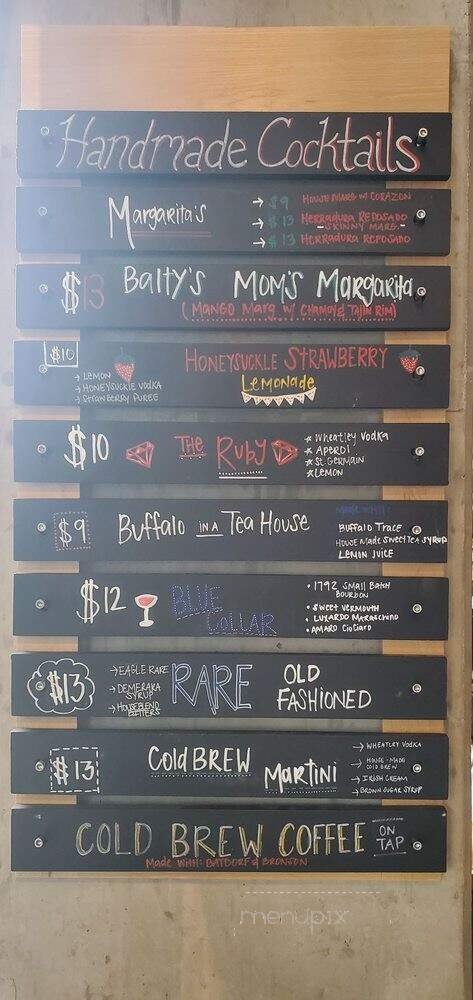 Handmade Cocktails
Margarita's
→ $9 House Marg w/ Corazon
→ $13 Herradura Reposado
- Skinny Marg -
→ $13 Herradura Reposado
$13 Balty's Mom's Margarita
(Mango Marg w/ Chamoy & Tajin Rim)
$10
Honeysuckle Strawberry
Lemonade
→ Lemon
→ Honeysuckle Vodka
→ Strawberry Puree
$10 The Ruby
Wheatley Vodka
Aperol
St. Germain
Lemon
$9 Buffalo in a Tea House
Made with:
Buffalo Trace
House Made Sweet Tea Syrup
Lemon Juice
$12 Blue
Collar
• 1792 Small Batch
Bourbon
• Sweet Vermouth
• Luxardo Maraschino
• Amaro Ciociaro
$13
→ Eagle Rare
→ Demerara
Syrup
→ Houseblend
Bitters
RARE OLD
FASHIONED
$13 Cold BREW Martini
→ Wheatley Vodka
→ House-Made
Cold Brew
→ Irish Cream
→ Brown Sugar Syrup
COLD BREW COFFEE ON
TAP
Made With: BATDORF & BRONSON
menupix